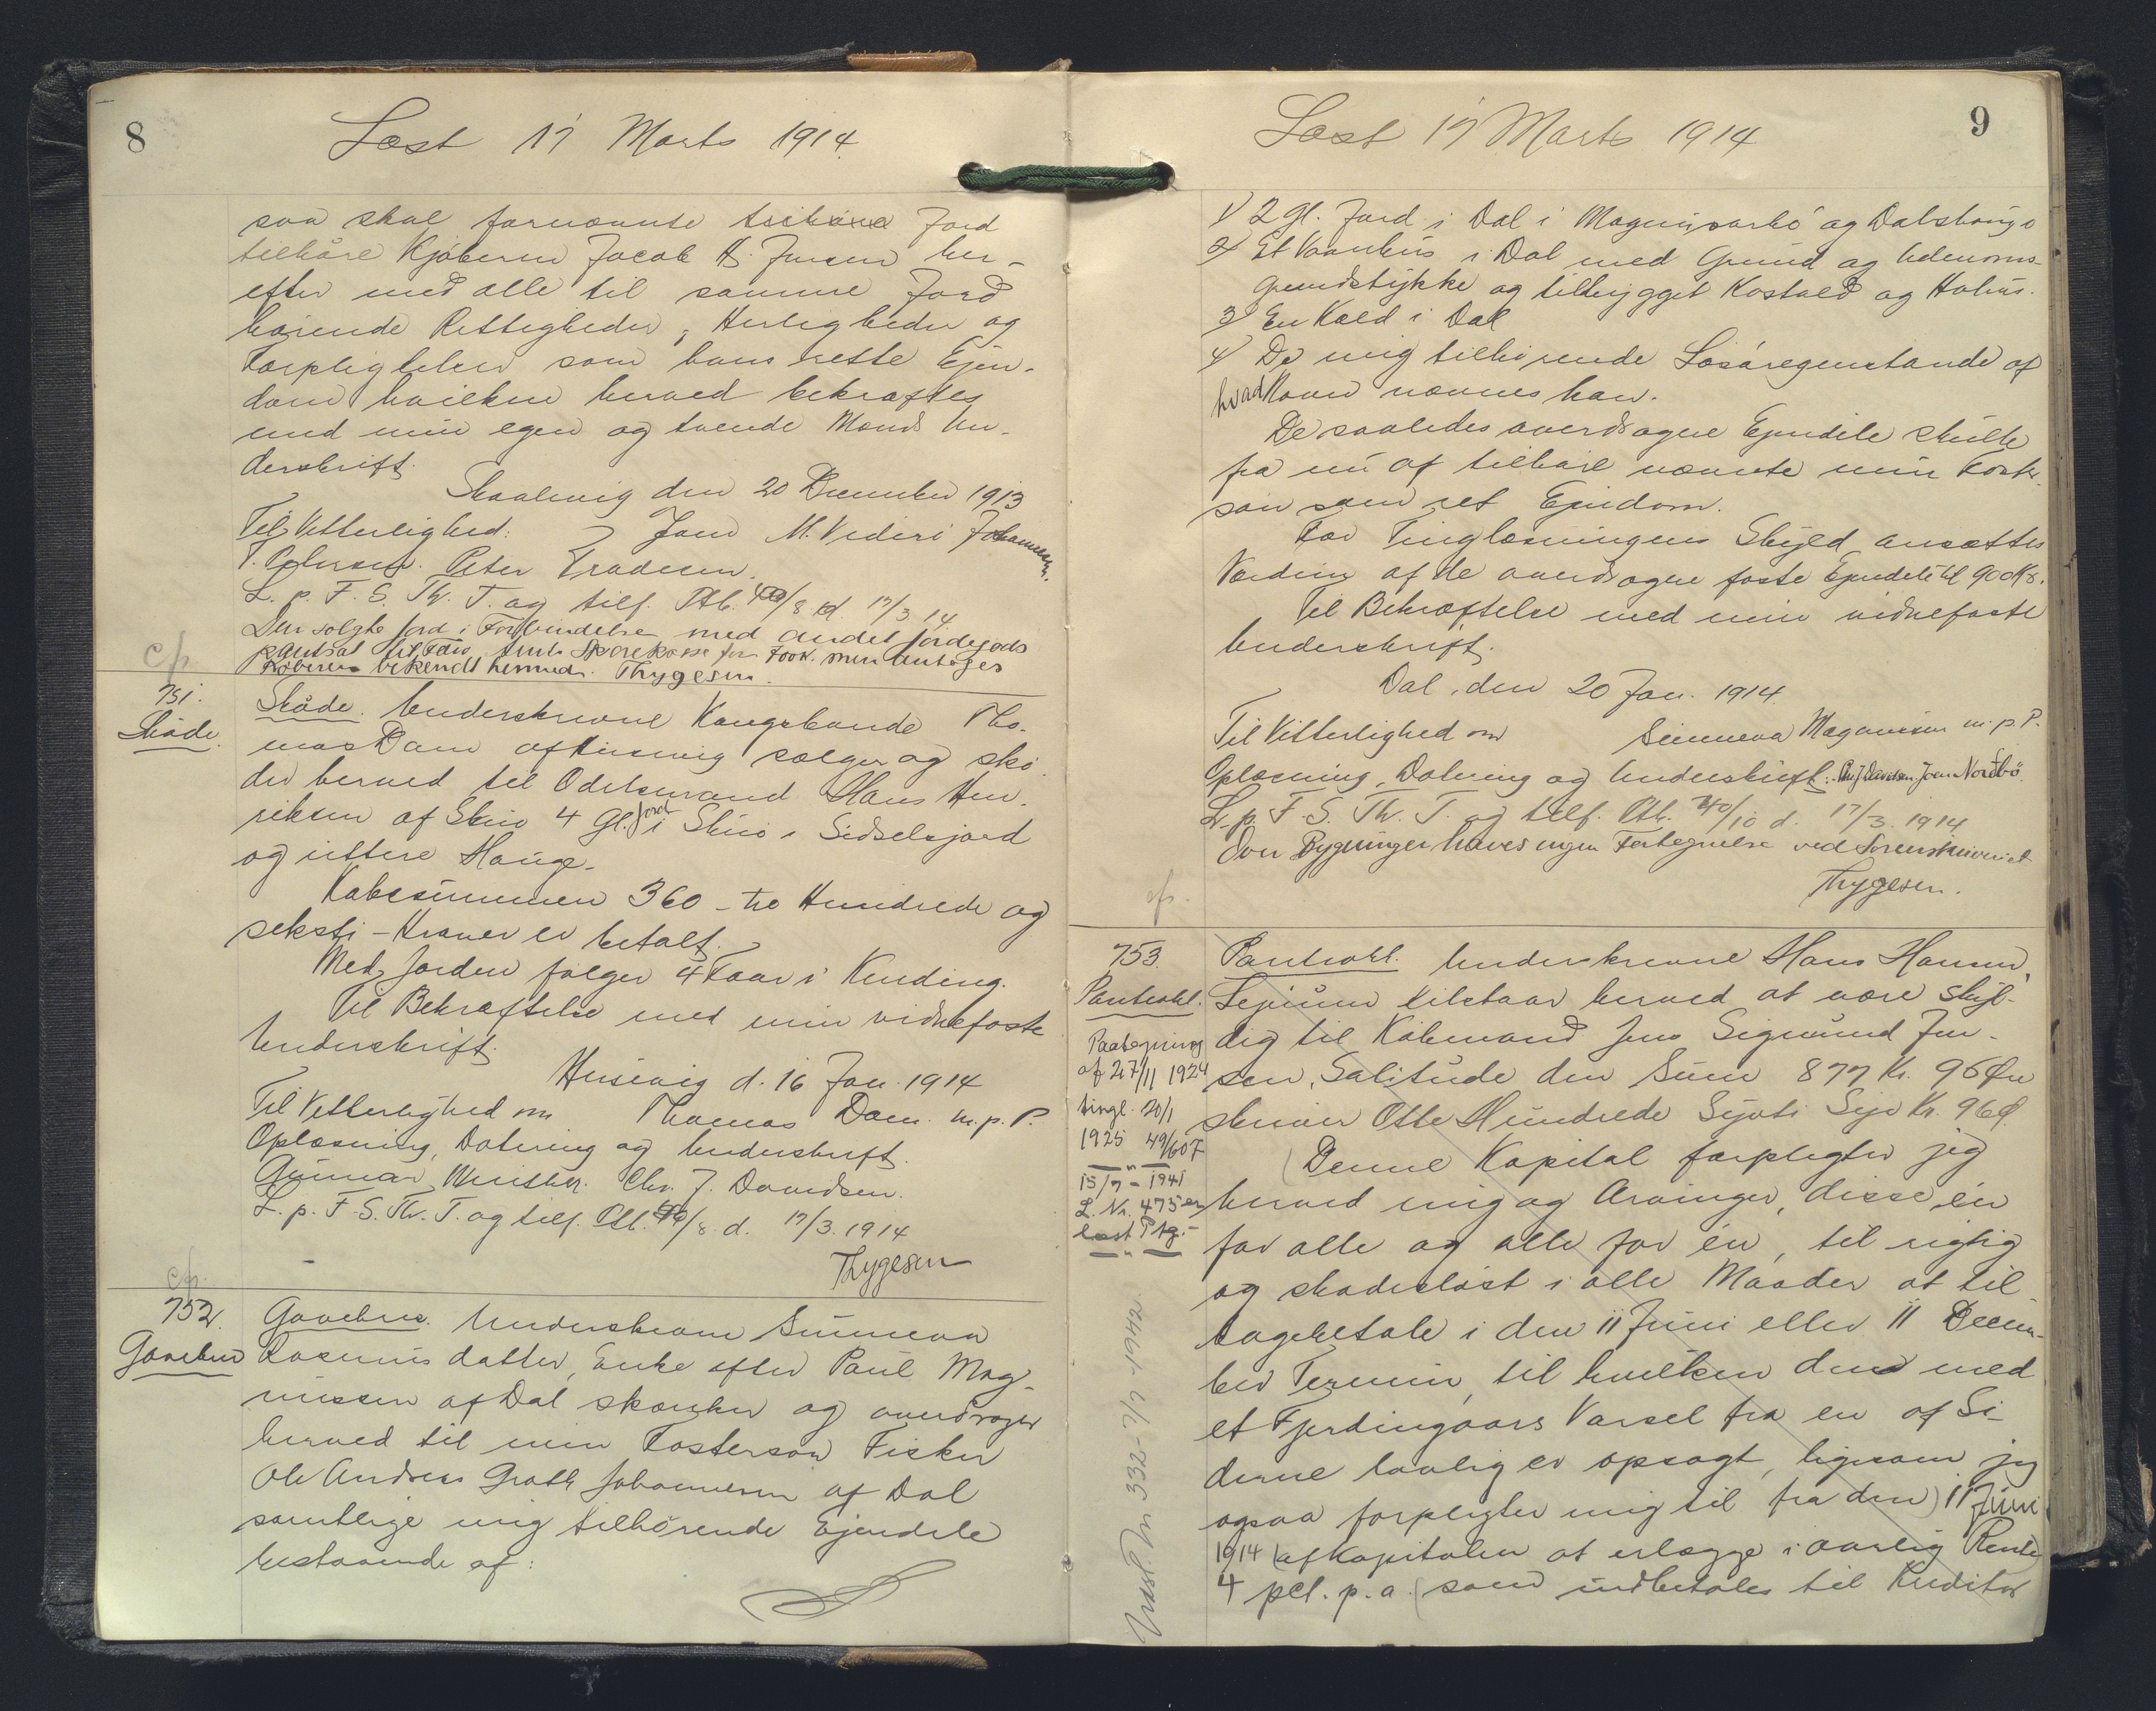 8
Læst 17 Marts 1914.
saa skal fornævnte Jord
tilhøre Kjøberen Jacob H. Jensen her-
efter med alle til samme Jord
hørende Rettigheder, Herligheder og
Forpligtelser som hans rette Ejen-
dom hvilken herved bekræftes
med min egen og tvende Mænds Un-
derskrift.
Skaalevig den 20 December 1913
Til Vitterlighed: Joen M. Videri Johannesen.
Peter
L. p. F. S. Th. T. og tilf. Ptb. /8 d. 17/3 14.
Den solgte Jord i Forbindelse med andet Jordegods
pantsat til Færø Amts Sparekasse for men antages
Køberen bekendt hermed. Thygesen.
cfr.
751.
Skøde.
Skøde. Underskrevne Kongsbonde Tho-
mas Dam af Husevig sælger og skø-
der herved til Odelsmand Hans Hen-
riksen af Skuø 4 Gl. Jord i Skuø i Sidselsjord
og uttere Hauge.
Købesummen 360 - tre Hundrede og
seksti - Kroner er betalt.
Med Jorden følger 4 Faar i Kending.
Til Bekræftelse med min vidnefaste
Underskrift.
Husevig d. 16 Jan. 1914
Til Vitterlighed om Thomas Dam. m. p. P.
Oplæsning, Datering og Underskrift.
Gunnar Chr. J. Davidsen.
L. p. F. S. Th. T. og tilf. Ptb. /8 d. 17/3. 1914
Thygesen
cfr.
752.
Gavebrev
Gavebrev. Underskrevne Sunneva
Rasmusdatter, Enke efter Paul Mag-
nussen af Dal skænker og overdrager
herved til min Fostersøn Fisker
Ole Andreas Groth Johannesen af Dal
samtlige mig tilhørende Ejendele
bestaaende af:
9
Læst 17 Marts 1914
1) 2 gl. Jord i Dal i og
2) Et Vaanhus i Dal med Grund og Udenoms-
grundstykke og tilbygget Kostald og Høhus.
3) En Kald i Dal
4) De mig tilhørende Løsøregenstande af
hvad Navn nævnes kan.
De saaledes overdragne Ejendele skulle
fra nu af tilhøre nævnte min Foster-
søn som ret Ejendom.
For Tinglæsningens Skyld ansættes
Værdien af de overdragne faste Ejendele til 900 Kr.
Til Bekræftelse med min vidnefaste
Underskrift.
Dal, den 20 Jan. 1914.
Til Vitterlighed om Sunneva Magnussen m. p. P.
Oplæsning, Datering og Underskrift: Davidsen. Joen Nordbø
L. p. F. S. Th. T. og tilf. Ptb. 240/10 d. 17/3. 1914
Over Bygninger haves ingen Fortegnelse ved Sorenskriveriet
Thygesen.
cfr.
753.
Panteobl.
Paategning
af 27/11 1924
tingl. 20/1
1925 49/607
15/7 - 1941
L. Nr. 475 er
læst Ptg.-
332 - 7/7 - 1942.
Panteobl. Underskrevne Hans Hansen,
tilstaar herved at være skyl-
dig til Købmand Jens Sigmund Jen-
sen, Salitude den Sum 877 Kr. 96 Øre
skriver Otte Hundrede Syvti Syv Kr. 96 Ø.
Denne Kapital forpligter jeg
herved mig og Arvinger, disse én
for alle og alle for én, til rigtig
og skadesløst i alle Maader at til-
bagebetale i den 11 Juni eller 11 Decem-
ber Termin, til hvilken den med
et Fjerdingaars Varsel fra en af Si-
derne lovlig er opsagt, ligesom jeg
ogsaa forpligter mig til fra den 11 Juni
1914 af Kapitalen at erlægge i aarlig Rente
4 pct. p. a. som indbetales til Kreditor